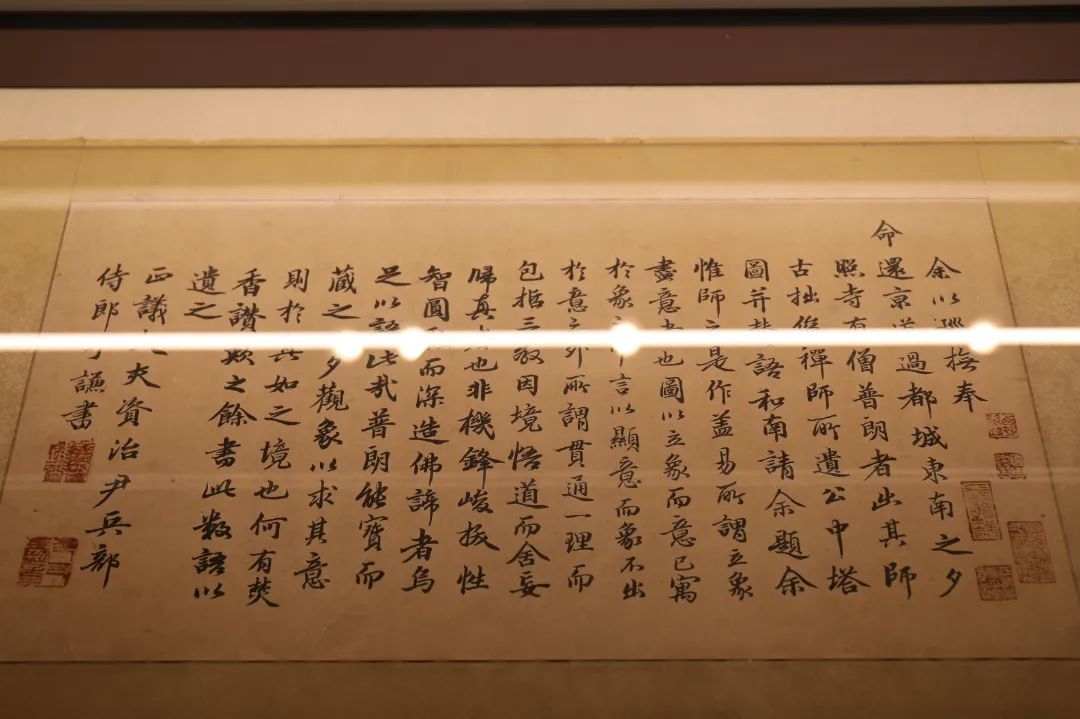 余以巡撫奉
命還京道過都城東南之夕
照寺有僧普朗者出其師
古拙俊禪師所遺公中塔
圖并贊語和南請余題余
惟師之是作盖易所謂立象
盡意者也圖以立象而意已寓
於象之中言以顯意而象不出
於意之外所謂貫通一理而
包括三教因境悟道而舍妄
歸真者也非機鋒峻拔性
智圓而深造佛諦者烏
足以語此哉普朗能寶而
藏之夕觀象以求其意
則於真如之境也何有焚
香讚歎之餘書此數語以
遺之
正議大夫資治尹兵部
侍郎于謙書